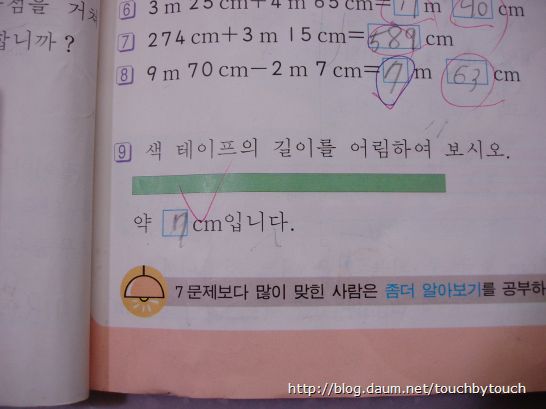 점을 거쳐
합니까?
6 3 m 25 cm+4 m 65 cm=7 m 90 cm
7 274 cm+3 m 15 cm=589 cm
8 9 m 70 cm−2 m 7 cm=7 m 63 cm
9 색 테이프의 길이를 어림하여 보시오.
약 7 cm입니다.
7 문제보다 많이 맞힌 사람은 좀더 알아보기를 공부하
http://blog.daum.net/touchbytouch